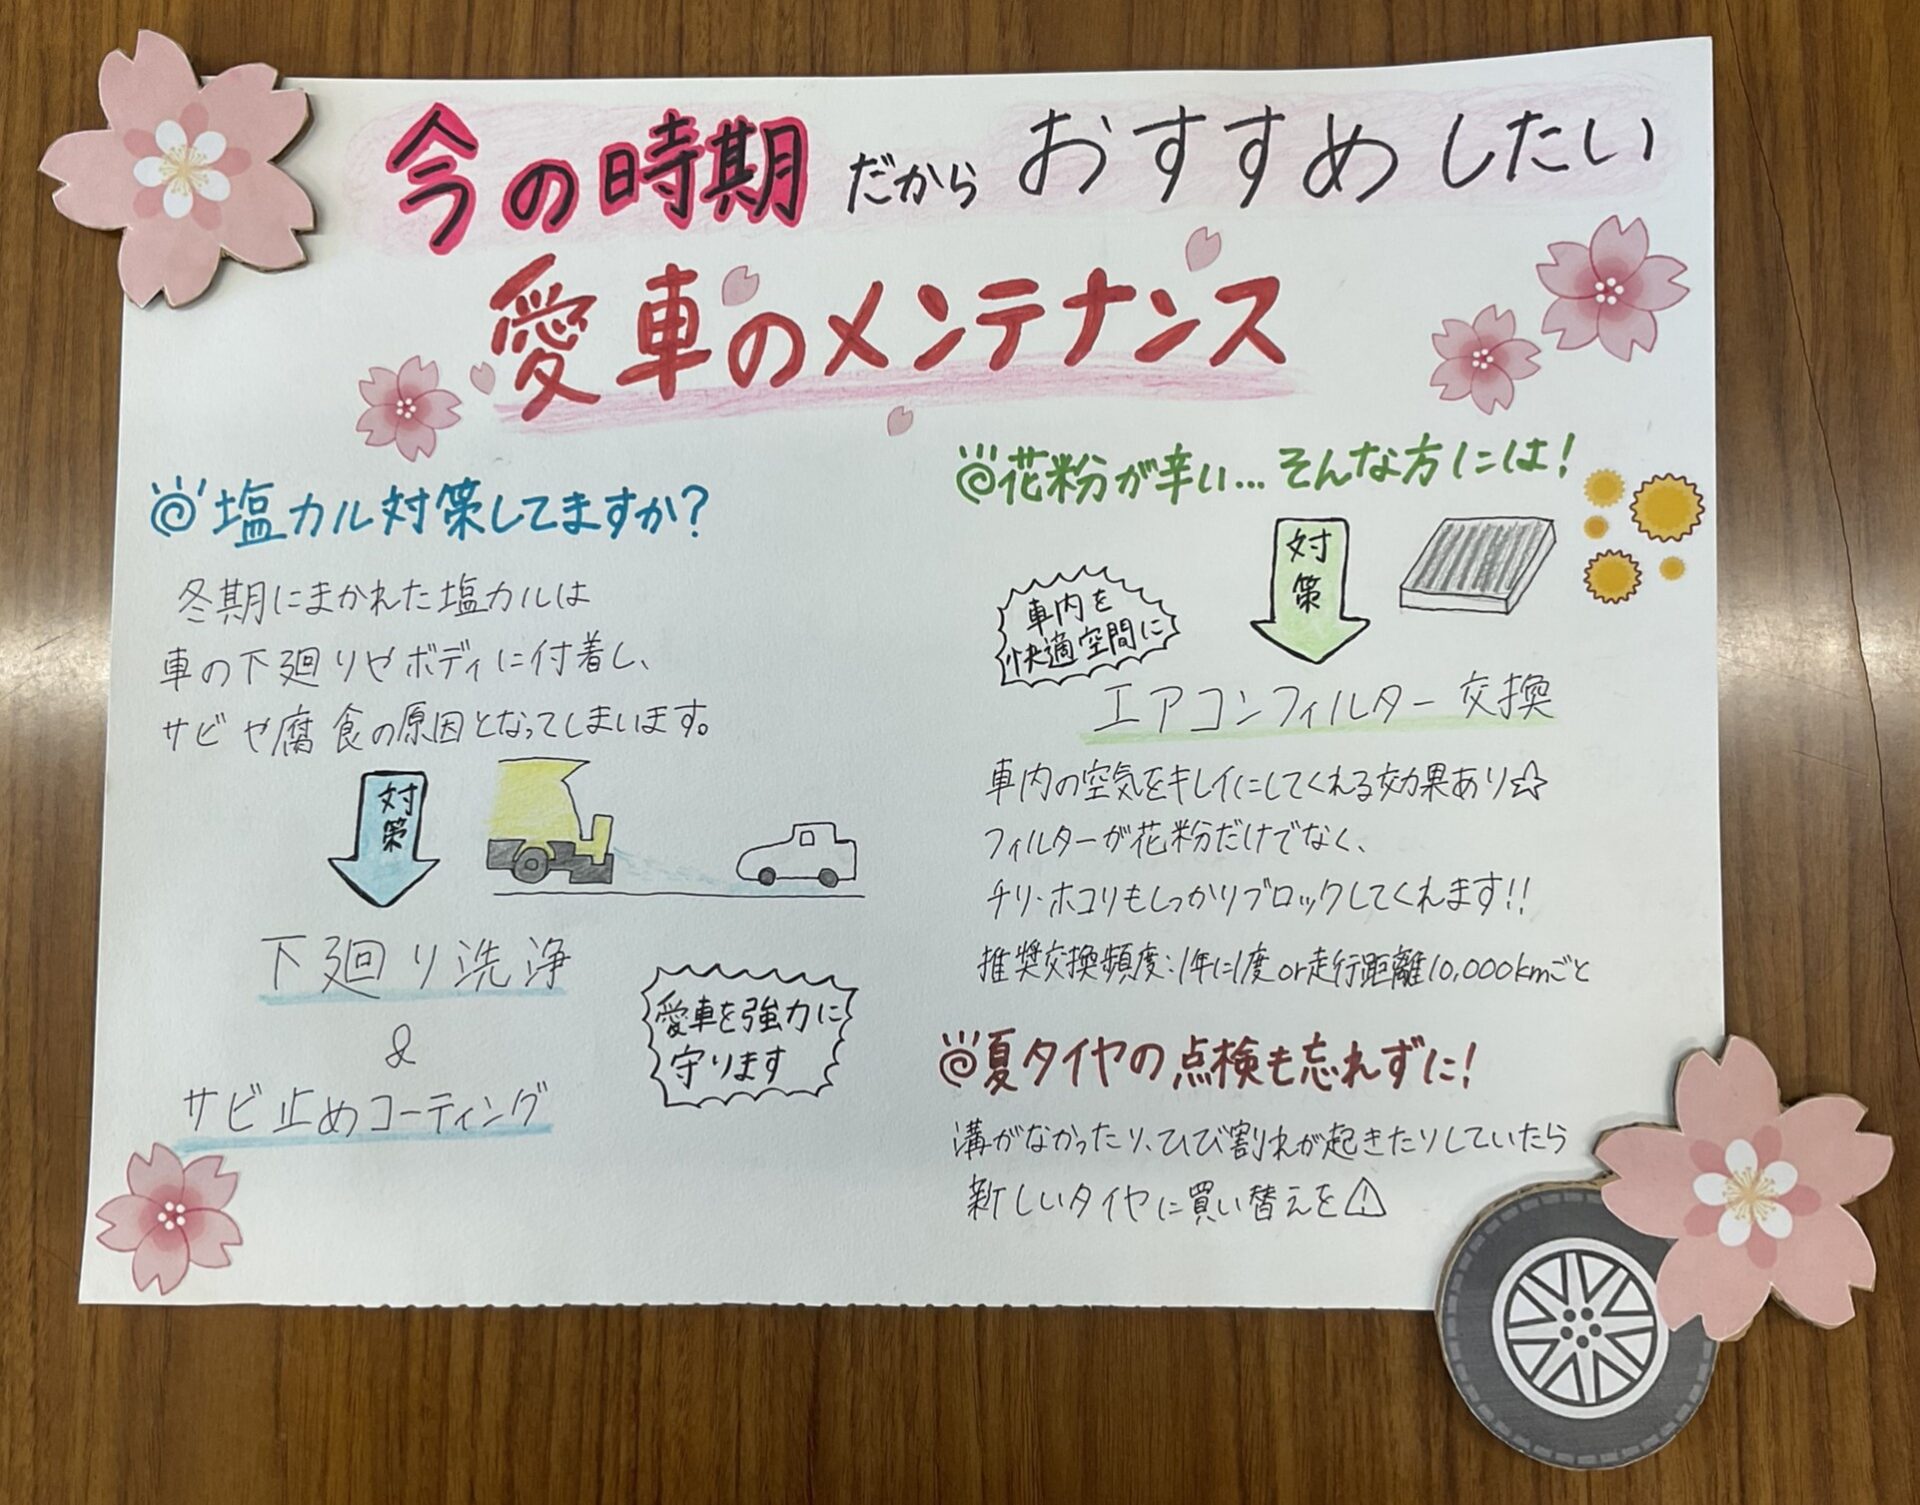 今の時期だからおすすめしたい
愛車のメンテナンス
塩カル対策してますか?
冬期にまかれた塩カルは
車の下廻りやボディに付着し、
サビや腐食の原因となってしまいます。
対策
下廻り洗浄
&
サビ止めコーティング
愛車を強力に
守ります
花粉が辛い…そんな方には!
対策
車内を
快適空間に
エアコンフィルター交換
車内の空気をキレイにしてくれる効果あり☆
フィルターが花粉だけでなく、
チリ・ホコリもしっかりブロックしてくれます!!
推奨交換頻度:1年に1度or走行距離10,000kmごと
夏タイヤの点検も忘れずに!
溝がなかったり、ひび割れが起きたりしていたら
新しいタイヤに買い替えを⚠